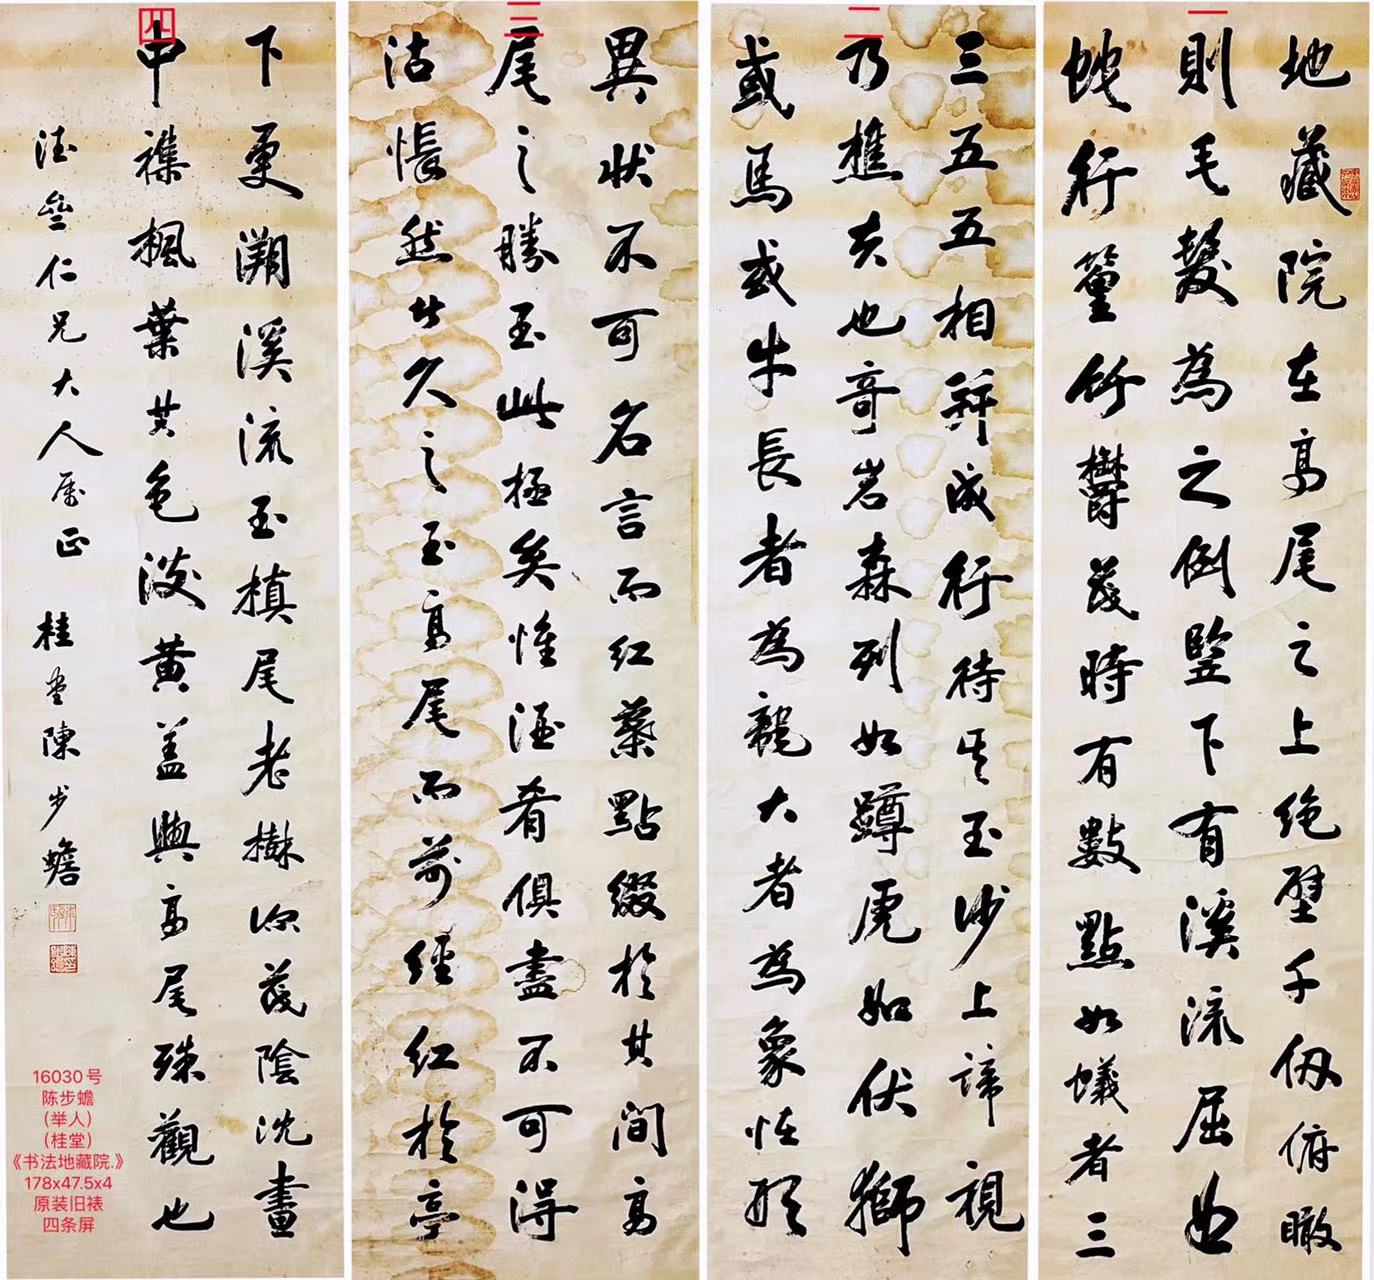 一
地藏院在高尾之上絶壁千仭俯瞰
則毛髮為之倒竪下有溪流屈如
蛇行篁竹欝茂時有數點如蟻者三
二
三五五相成行待其至沙上諦視
乃樵夫也奇岩森列如蹲虎如伏獅
或馬或牛長者為龍大者為象怪形
三
異狀不可名言而紅葉點綴於其間高
尾之勝至此極矣惟酒肴俱盡不可得
沽悵然者久之至高尾而前經紅於亭
四
下更溯溪流至槙尾老樹深茂陰沈畫
中襍楓葉其色淡黄盖與高尾殊觀也
仁兄大人属正 桂堂陳步蟾
16030号
陈步蟾
（举人）
（桂堂）
《书法地藏院.》
178x47.5x4
原装旧裱
四条屏